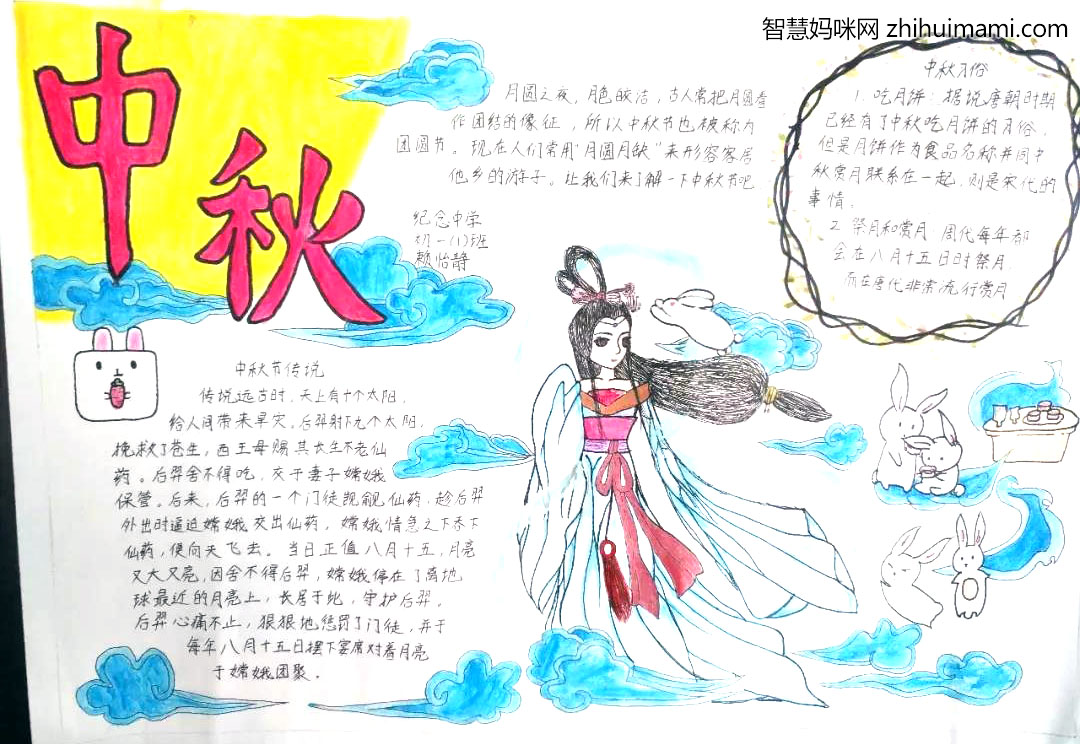 智慧妈咪网 zhihuimami.com
中秋
月圆之夜，月色皎洁，古人常把月圆看
作团结的像征，所以中秋节也被称为
团圆节。现在人们常用"月圆月缺"来形容客居
他乡的游子。让我们来了解一下中秋节吧
纪念中学
初一(1)班
赖怡静
中秋习俗
1. 吃月饼：据说唐朝时期
已经有了中秋吃月饼的习俗，
但是月饼作为食品名称并同中
秋赏月联系在一起，则是宋代的
事情。
2. 祭月和赏月：周代每年都
会在八月十五日时祭月，
而在唐代非常流行赏月
中秋节传说
传说远古时，天上有十个太阳，
给人间带来旱灾。后羿射下九个太阳，
挽救了苍生，西王母赐其长生不老仙
药。后羿舍不得吃，交于妻子嫦娥
保管。后来，后羿的一个门徒觊觎仙药，趁后羿
外出时逼迫嫦娥交出仙药，嫦娥情急之下吞下
仙药，便向天飞去。当日正值八月十五，月亮
又大又亮，因舍不得后羿，嫦娥停在了离地
球最近的月亮上，长居于此，守护后羿。
后羿心痛不止，狠狠地惩罚了门徒，并于
每年八月十五日摆下宴席对着月亮
于嫦娥团聚。